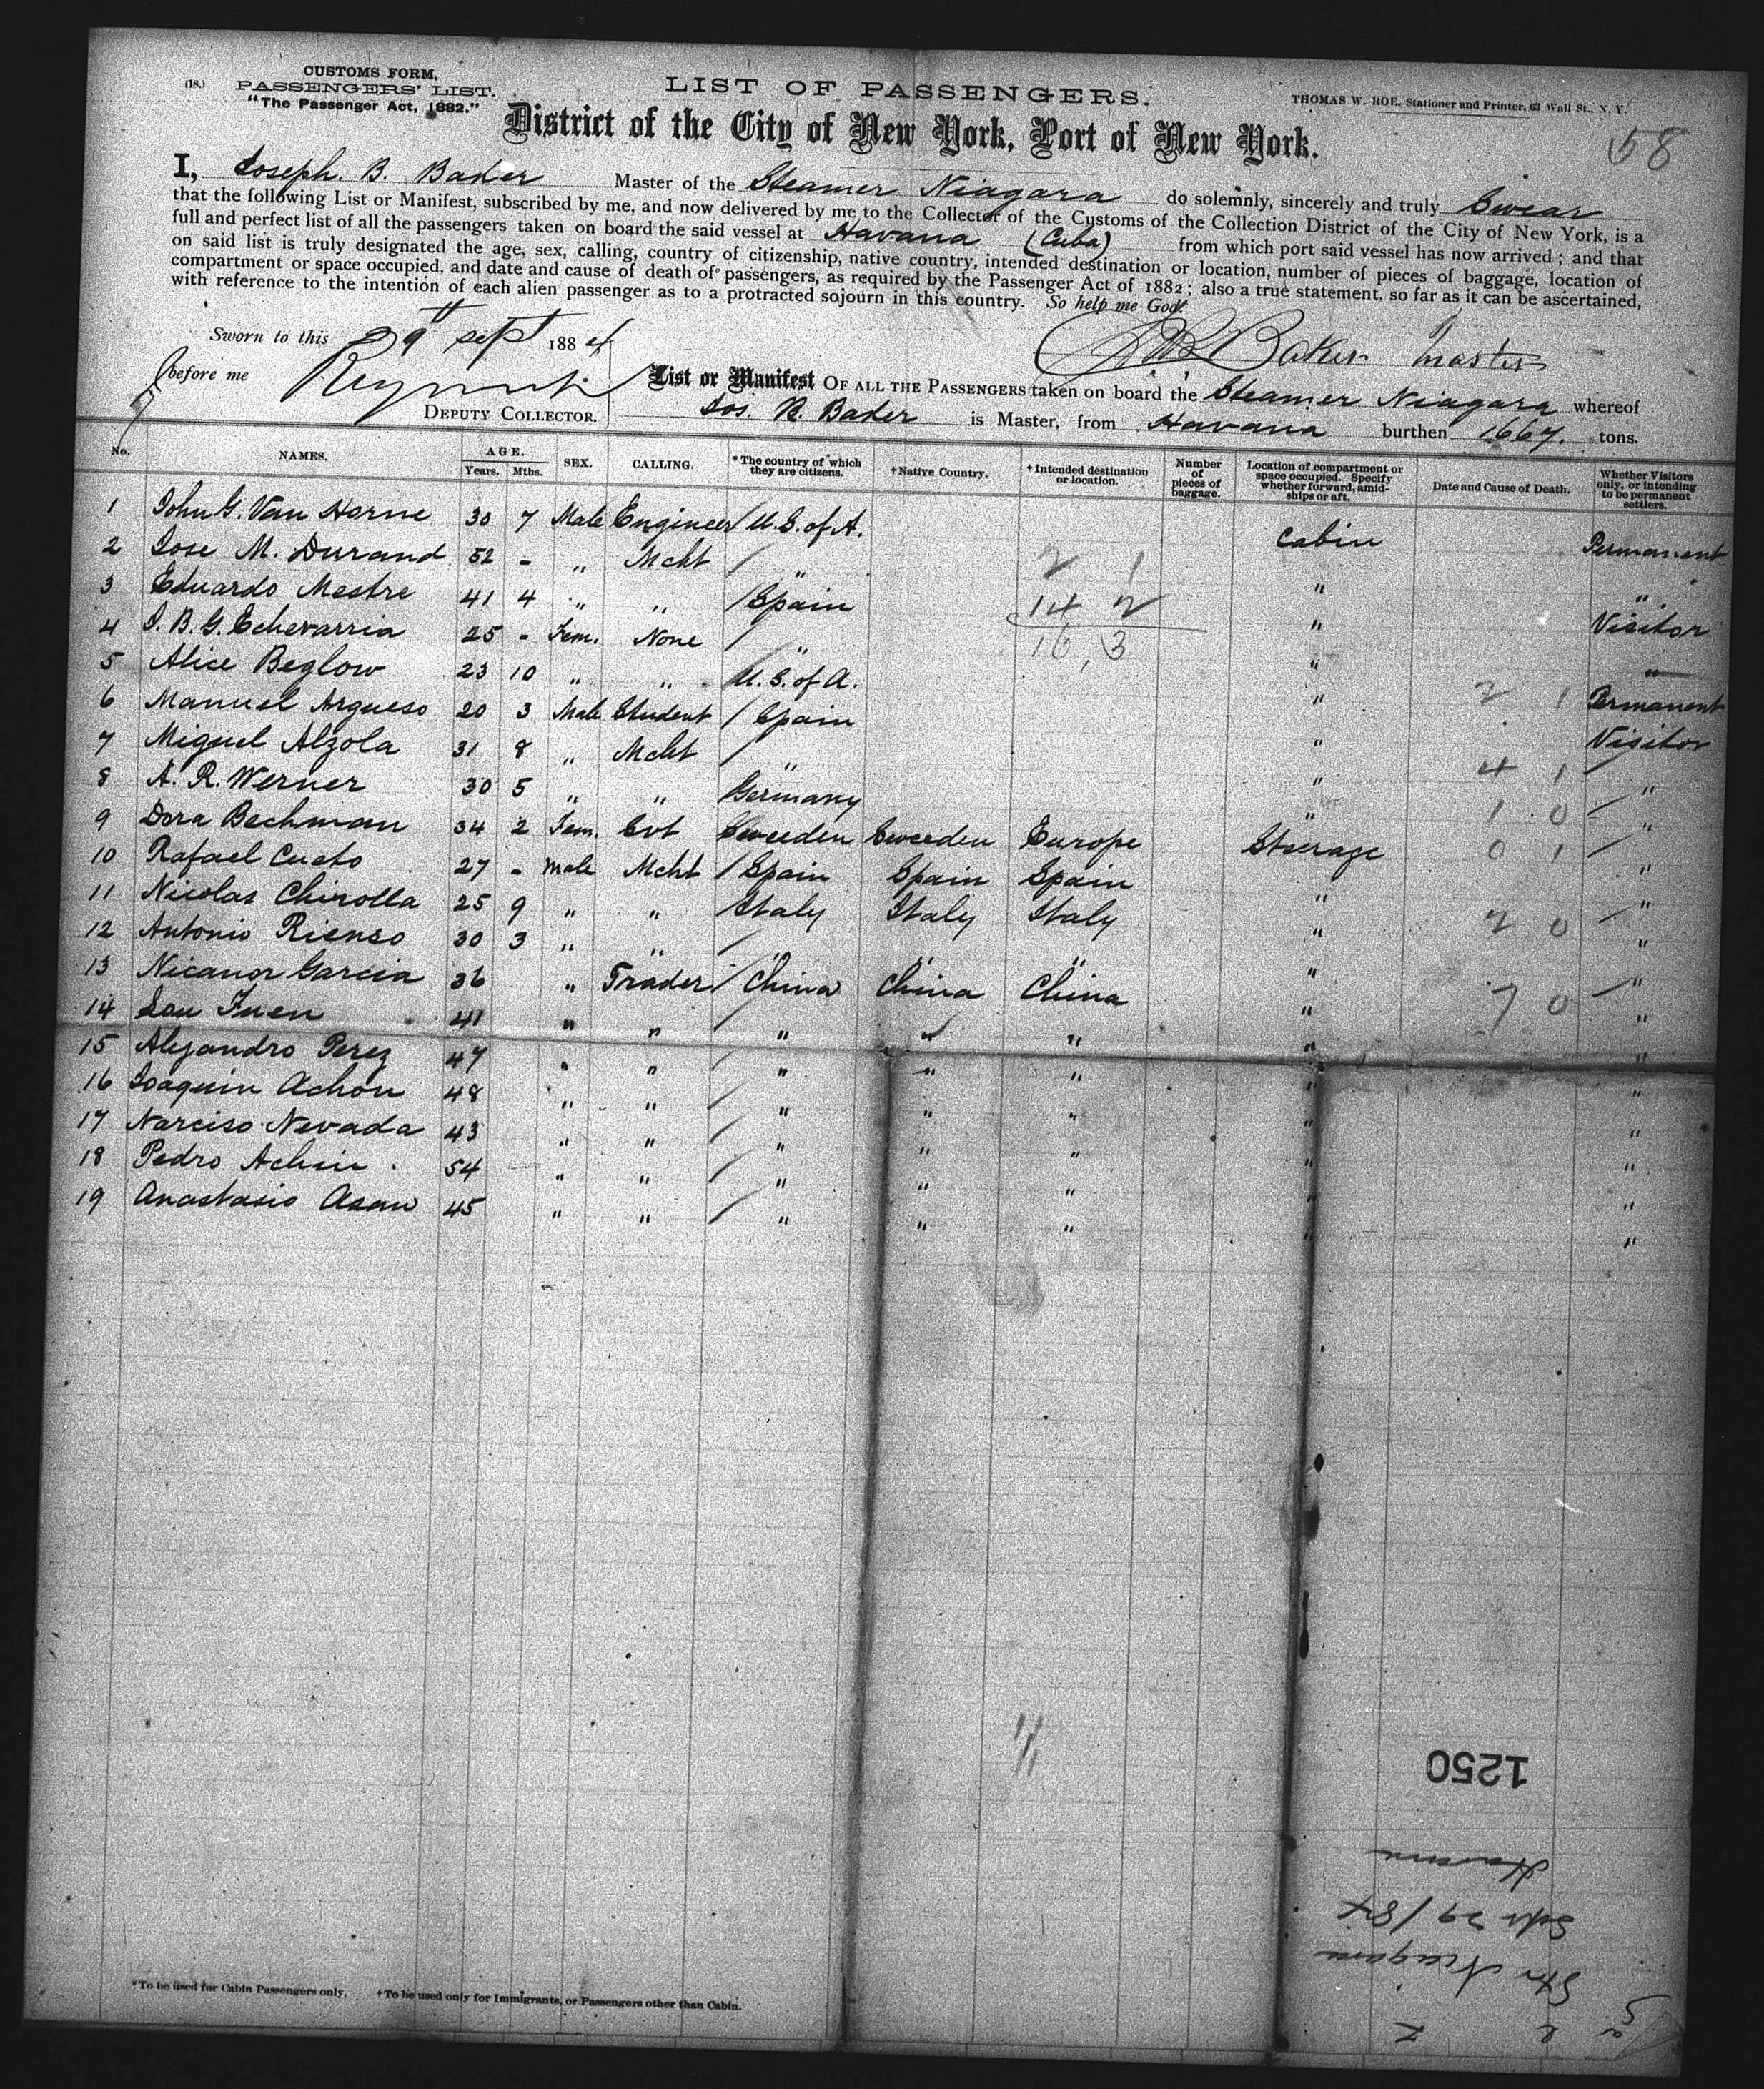 (18.)
CUSTOMS FORM,
PASSENGERS' LIST.
"The Passenger Act, 1882."
LIST OF PASSENGERS.
THOMAS W. ROE, Stationer and Printer, 63 Wall St., N. Y.
District of the City of New York, Port of New York.
58
I, Joseph. B. Baker Master of the Steamer Niagara do solemnly, sincerely and truly Swear
that the following List or Manifest, subscribed by me, and now delivered by me to the Collector of the Customs of the Collection District of the City of New York, is a
full and perfect list of all the passengers taken on board the said vessel at Havana (Cuba) from which port said vessel has now arrived; and that
on said list is truly designated the age, sex, calling, country of citizenship, native country, intended destination or location, number of pieces of baggage, location of
compartment or space occupied, and date and cause of death of passengers, as required by the Passenger Act of 1882; also a true statement, so far as it can be ascertained,
with reference to the intention of each alien passenger as to a protracted sojourn in this country. So help me God.
Sworn to this 29th Sept 1884
Baker Master
before me
DEPUTY COLLECTOR.
List or Manifest OF ALL THE PASSENGERS taken on board the Steamer Niagara whereof
Jos. B. Baker is Master, from Havana burthen 1667. tons.
No. NAMES. AGE. Years. Mths. SEX. CALLING. *The country of which they are citizens. †Native Country. †Intended destination or location. Number of pieces of baggage. Location of compartment or space occupied. Specify whether forward, amidships or aft. Date and Cause of Death. Whether Visitors only, or intending to be permanent settlers.
1 John G. Van Horne 30 7 Male Engineer / U.S. of A. Cabin Permanent
2 Jose M. Durand 52 - " Mcht / " 2 1 " "
3 Eduardo Mestre 41 4 " " / Spain 14 2 " Visitor
4 J. B. G. Echevarria 25 - Fem. None / " 16 3 " "
5 Alice Beglow 23 10 " " U.S. of A. " 2 1 Permanent
6 Manuel Argueso 20 3 Male Student / Spain " Visitor
7 Miguel Alzola 31 8 " Mcht / " " 4 1 "
8 A. R. Werner 30 5 " " Germany " 1 0 "
9 Dora Bechman 34 2 Fem. Svt Sweeden Sweeden Europe Steerage 0 1 "
10 Rafael Cueto 27 - Male Mcht / Spain Spain Spain " "
11 Nicolas Chirolla 25 9 " " / Italy Italy Italy " 2 0 "
12 Antonio Rienso 30 3 " " / " " " " "
13 Nicanor Garcia 36 " Trader / China China China " 7 0 "
14 Lau Fuen 41 " " / " " " " "
15 Alejandro Perez 47 " " / " " " " "
16 Joaquin Achon 48 " " / " " " " "
17 Narciso Nevada 43 " " / " " " " "
18 Pedro Achin 54 " " / " " " " "
19 Anastasio Asan 45 " " / " " " " "
1250
Havana
Sept 29/84
Str Niagara
*To be used for Cabin Passengers only. †To be used only for Immigrants, or Passengers other than Cabin.